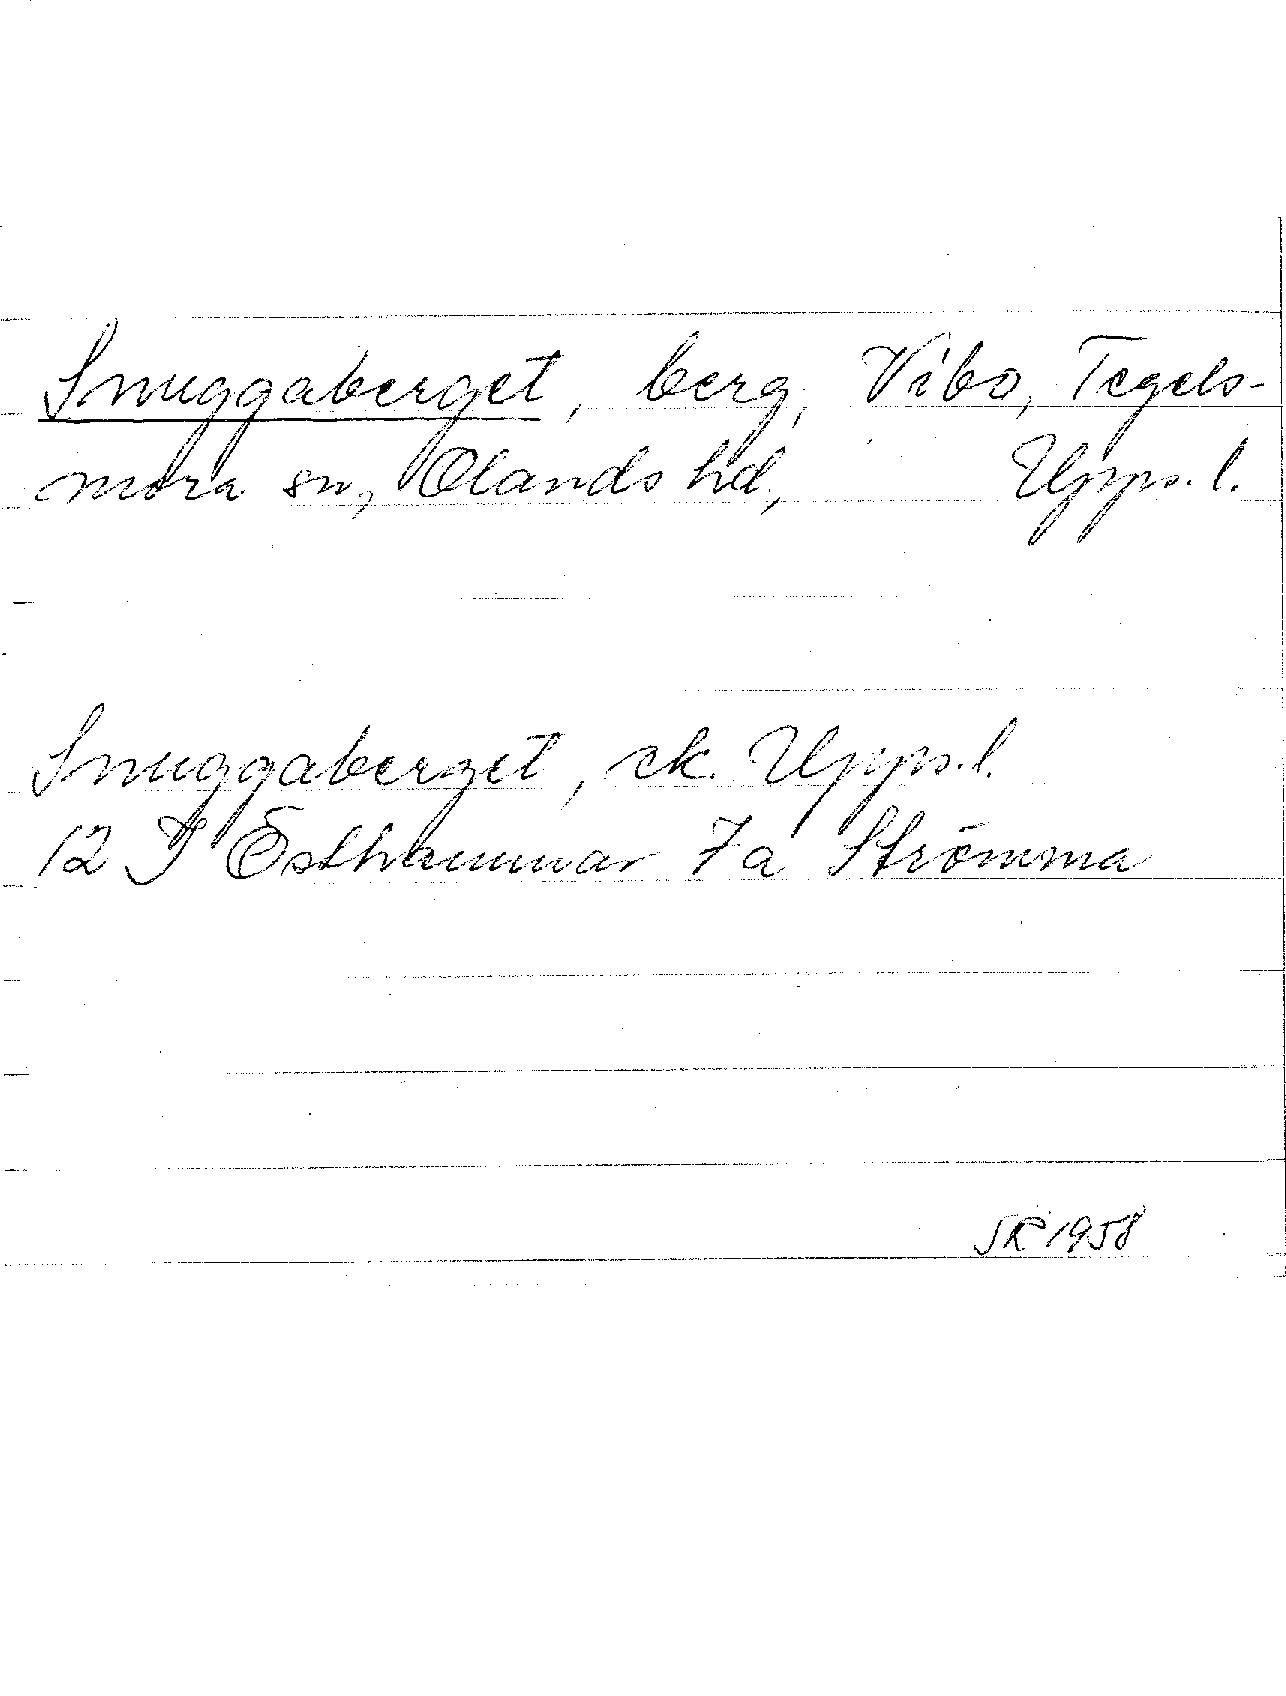 Snuggaberget, berg, Vibo, Tegels-
mora sn, Olands hd, Upps. l.
Snuggaberget, ek. Upps. l.
12 I Östhammar 7 a Strömma
SR 1958